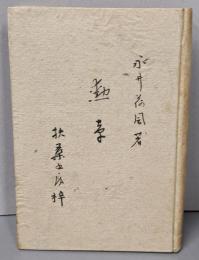 永井荷風著
勲章
扶桑書房梓